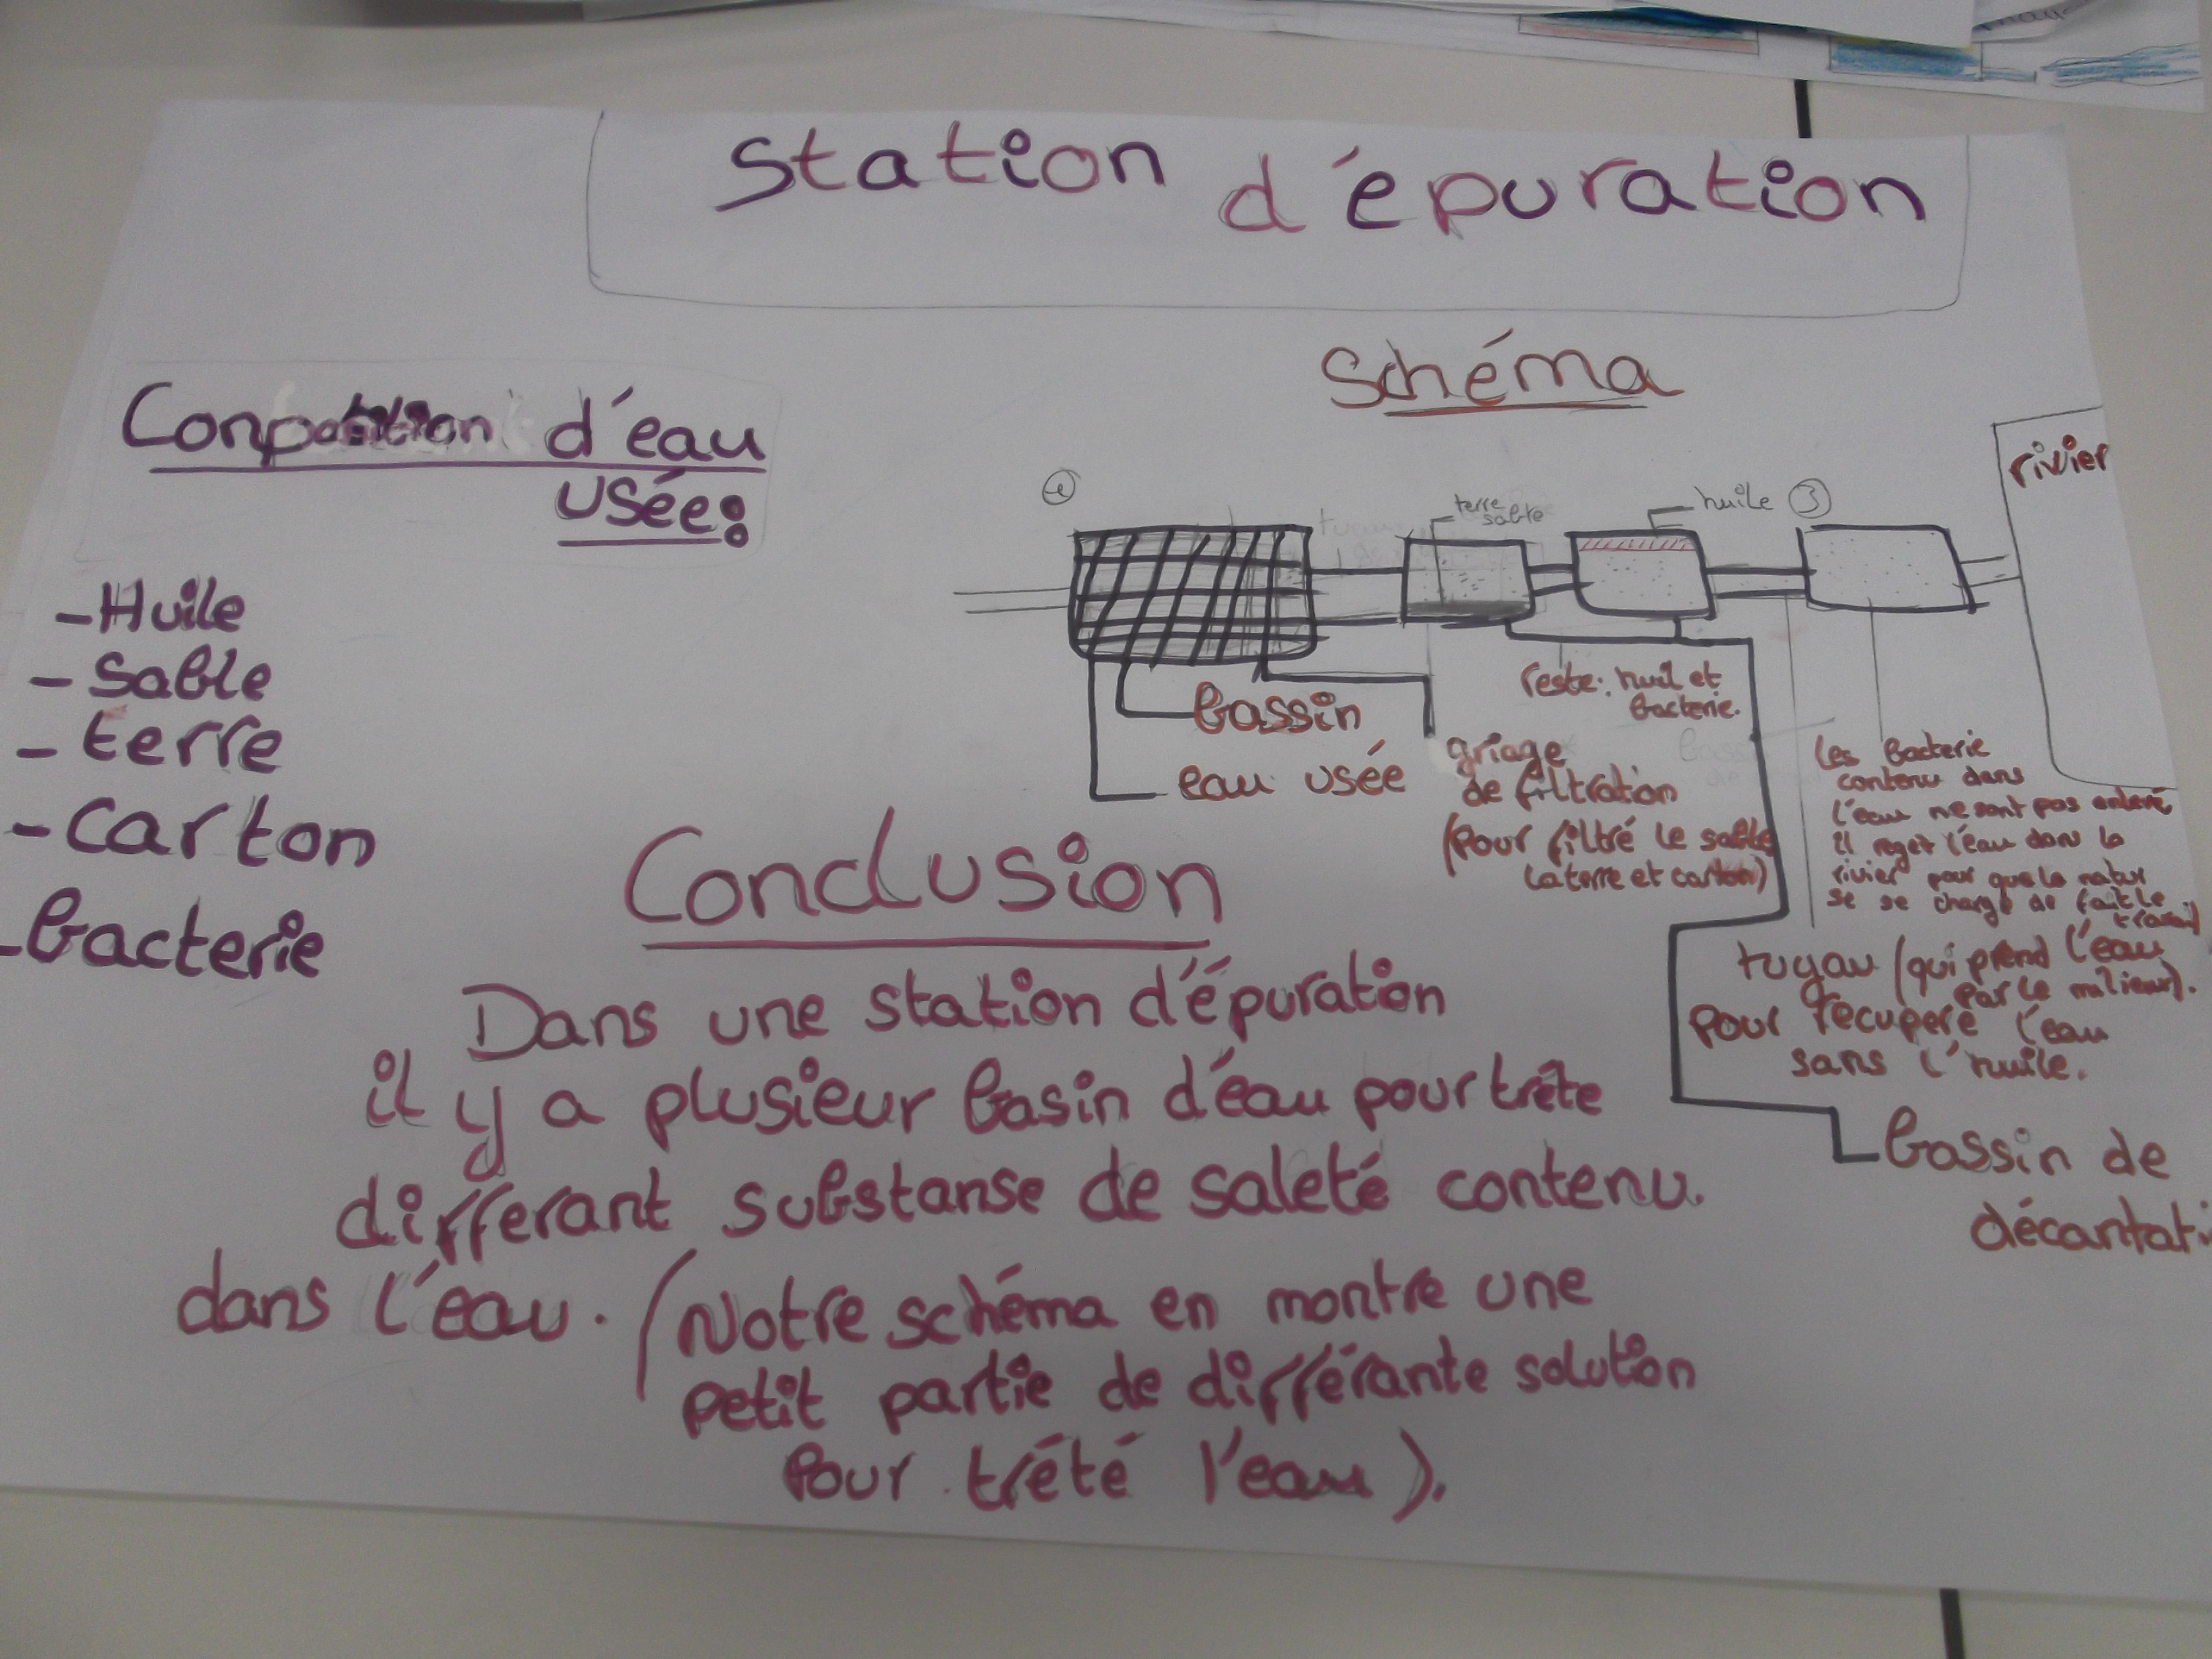 Station d'épuration
Conpotition d'eau
usée:
- Huile
- Sable
- terre
- carton
- bacterie
Schéma
terre
sable
huile 3
rivier
bassin
eau usée
griage
de filtration
(pour filtré le sable
la terre et carton)
reste: huil et
bacterie.
les bacterie
contenu dans
l'eau ne sont pas enlevé
il reget l'eau dans la
rivier pour que la natur
se se charge de fait le
travail
tuyau (qui prend l'eau
par le milieu).
pour recuperé l'eau
sans l'huile.
bassin de
décantati
Conclusion
Dans une station d'épuration
il y a plusieur basin d'eau pour trête
differant substanse de saleté contenu.
dans l'eau. (Notre schéma en montre une
petit partie de différante solution
pour trété l'eau).